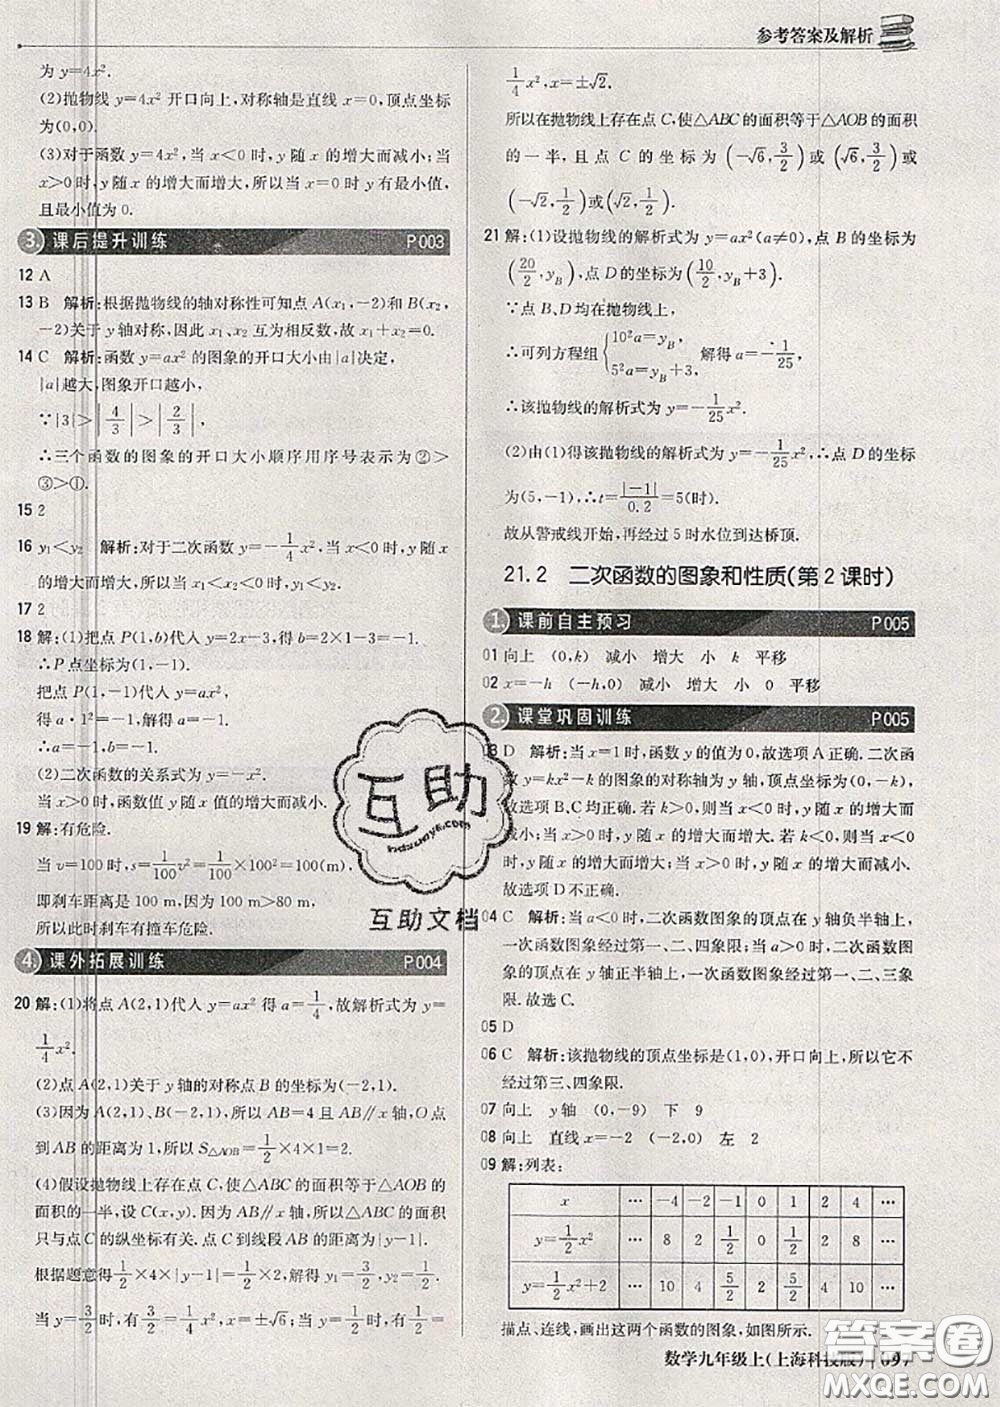 参考答案及解析
为 y=4x².
(2)抛物线 y=4x² 开口向上,对称轴是直线 x=0,顶点坐标
为(0,0).
(3)对于函数 y=4x²,当 x<0 时,y 随 x 的增大而减小;当
x>0 时,y 随 x 的增大而增大,所以当 x=0 时 y 有最小值,
且最小值为 0.
3. 课后提升训练 P003
12 A
13 B 解析:根据抛物线的轴对称性可知点 A(x₁,-2)和 B(x₂,
-2)关于 y 轴对称,因此 x₁、x₂ 互为相反数,故 x₁+x₂=0.
14 C 解析:函数 y=ax² 的图象的开口大小由|a|决定,
|a|越大,图象开口越小,
∵|3|>|4/3|>|2/3|,
∴三个函数的图象的开口大小顺序用序号表示为②>
③>①.
15 2
16 y₁<y₂ 解析:对于二次函数 y=-1/4x²,当 x<0 时,y 随 x
的增大而增大,所以当 x₁<x₂<0 时,y₁<y₂.
17 2
18 解:(1)把点 P(1,b)代人 y=2x-3,得 b=2×1-3=-1.
∴P 点坐标为(1,-1).
把点 P(1,-1)代人 y=ax²,
得 a·1²=-1.
∴a=-1.
(2)二次函数的关系式为 y=-x².
当 x<0 时,函数值 y 随 x 值的增大而增大.
19 解:有危险.
当 v=100 时,s=1/100v²=1/100×100²=100(m).
即刹车距离是 100 m,因为 100 m>80 m,
所以此时刹车有撞车危险.
4. 课外拓展训练 P004
20 解:(1)将点 A(2,1)代人 y=ax² 得 a=1/4,故解析式为 y=
1/4x².
(2)点 A(2,1)关于 y 轴的对称点 B 的坐标为(-2,1).
(3)因为 A(2,1),B(-2,1),所以 AB=4 且 AB∥x 轴,O 点
到 AB 的距离为 1,所以 S△AOB=1/2×4×1=2.
(4)假设抛物线上存在点 C,使△ABC 的面积等于△AOB 的
面积的一半,设 C(x,y). 因为 AB∥x 轴,所以△ABC 的面积
只与点 C 的纵坐标有关.点 C 到线段 AB 的距离为|y-1|.
根据题意得1/2×4×|y-1|=1/2×2.解得 y₁=3/2,y₂=1/2.
当 y=3/2时,有3/2=1/4x²,x=±√6,当 y=1/2时,有1/2=
1/4x²,x=±√2.
所以在抛物线上存在点 C,使△ABC 的面积等于△AOB 的面积
的一半,且点 C 的坐标为(-√6,3/2)或(√6,3/2)或
(-√2,1/2)或(√2,1/2).
21 解:(1)设抛物线的解析式为 y=ax²(a≠0),点 B 的坐标为
(20/2,y_B),点 D 的坐标为(10/2,y_B+3).
∵点 B、D 均在抛物线上,
∴可列方程组{10²a=y_B, 5²a=y_B+3 解得 a=-1/25.
∴该抛物线的解析式为 y=-1/25x².
(2)由(1)得该抛物线的解析式为 y=-1/25x²,∴点 D 的坐标
为(5,-1),∴t=|-1|/0.2=5(时).
故从警戒线开始,再经过 5 时水位到达桥顶.
21.2 二次函数的图象和性质(第2课时)
1. 课前自主预习 P005
01 向上 (0,k) 减小 增大 小 k 平移
02 x=-h (-h,0) 减小 增大 小 0 平移
2. 课堂巩固训练 P005
03 D 解析:当 x=1 时,函数 y 的值为 0,故选项 A 正确. 二次函
数 y=kx²-k 的图象的对称轴为 y 轴,顶点坐标为(0,-k),
故选项 B、C 均正确. 若 k>0,则当 x>0 时,y 随 x 的增大而
增大;当 x<0 时,y 随 x 的增大而减小;
若 k<0,则当 x<0 时,y 随 x 的增大而增大;当 x>0 时,y 随 x 的增大而减小.
故选项 D 不正确.
04 C 解析:当 a<0 时,二次函数图象的顶点在 y 轴负半轴上,
一次函数图象经过第一、二、四象限;当 a>0 时,二次函数图
象的顶点在 y 轴正半轴上,一次函数图象经过第一、二、三象
限. 故选 C.
05 D
06 C 解析:该抛物线的顶点坐标是(1,0),开口向上,所以它不
经过第三、四象限.
07 向上 y 轴 (0,-9) 下 9
08 向上 直线 x=-2 (-2,0) 左 2
09 解:列表:
x … -4 -2 -1 0 1 2 4 …
y=1/2x² … 8 2 1/2 0 1/2 2 8 …
y=1/2x²+2 … 10 4 5/2 2 5/2 4 10 …
描点、连线,画出这两个函数的图象,如图所示.
数学九年级上(上海科技版) 097
互助
互助文档
答案圈
MXQE.COM